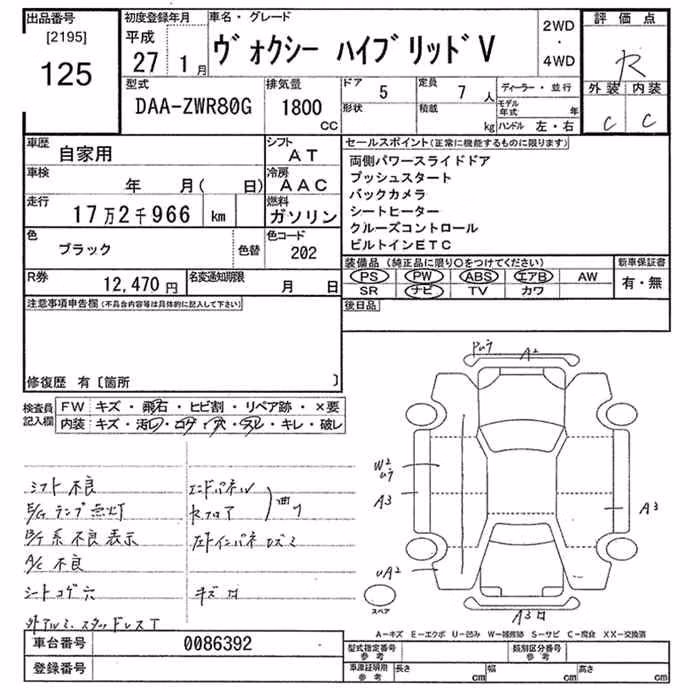 出品番号
[2195]
125
初度登録年月
平成
27 1月
車名・グレード
ヴォクシー ハイブリッドV
2WD
・
4WD
評価点
R
外装 内装
C C
型式
DAA-ZWR80G
排気量
1800
CC
ドア 5
形状
定員 7 人
積載 kg
ディーラー・並行
モデル年式 年
ハンドル 左・右
車歴
自家用
シフト
AT
車検
年 月( 日)
冷房
AAC
走行
17万2千966 km
燃料
ガソリン
色
ブラック
色替
色コード
202
R券
12,470円
名変通知期限
月 日
セールスポイント(正常に機能するものに限ります)
両側パワースライドドア
プッシュスタート
バックカメラ
シートヒーター
クルーズコントロール
ビルトインETC
装備品(純正品に限り○をつけてください)
PS PW ABS エアB AW
SR ナビ TV カワ
新車保証書
有・無
後日品
注意事項申告欄(不具合内容等は具体的に記入して下さい)
修復歴 有〔箇所 〕
検査員
記入欄
FW キズ・飛石・ヒビ割・リペア跡・×要
内装 キズ・汚レ・コゲ・穴・スレ・キレ・破レ
シフト不良
E/Gランプ点灯
B/T系不良表示
A/C不良
シートコゲ穴
外アルミ、スタッドレスT
エンドパネル
Rフロア
曲り
左下インパネロズミ
キズ凹
Pムラ
A2
W2
ムラ
A3
UA2
A3
A3凹
スペア
A-キズ E-エクボ U-凹み W-補修跡 S-サビ C-腐食 XX-交換済
車台番号
0086392
登録番号
型式指定番号
参考
類別区分番号
参考
車庫証明用
参考
長さ cm
幅 cm
高さ cm